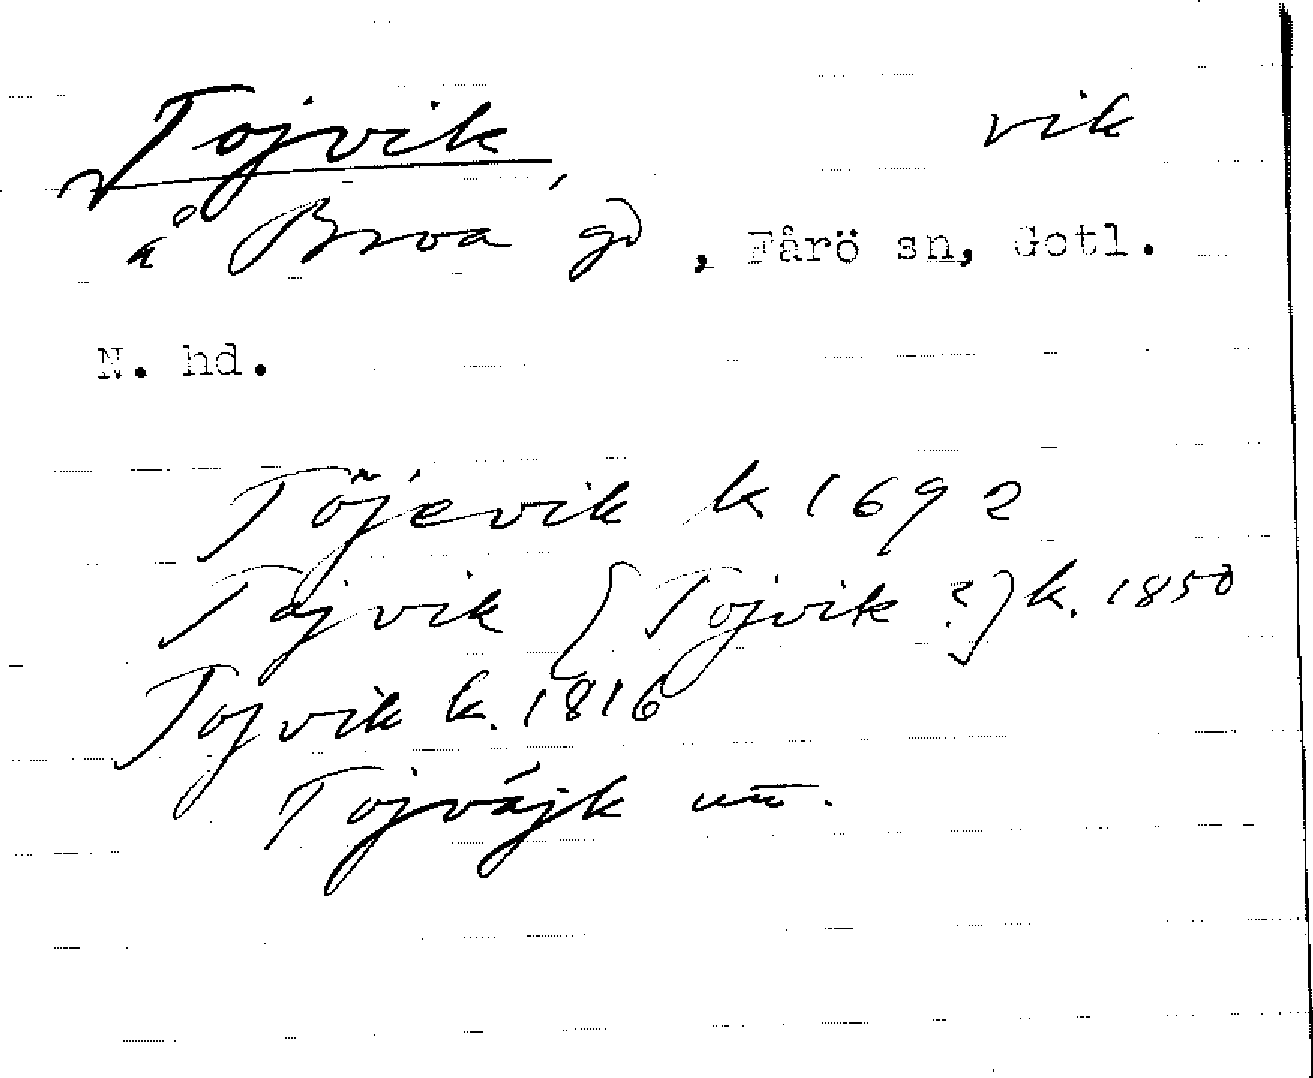 Tojvik, vik
å Broa gd, Fårö sn, Gotl.
N. hd.
Töjevik k 1692
Tajvik (Tojvik?) k. 1850
Tojvik k. 1816
Tojvájk